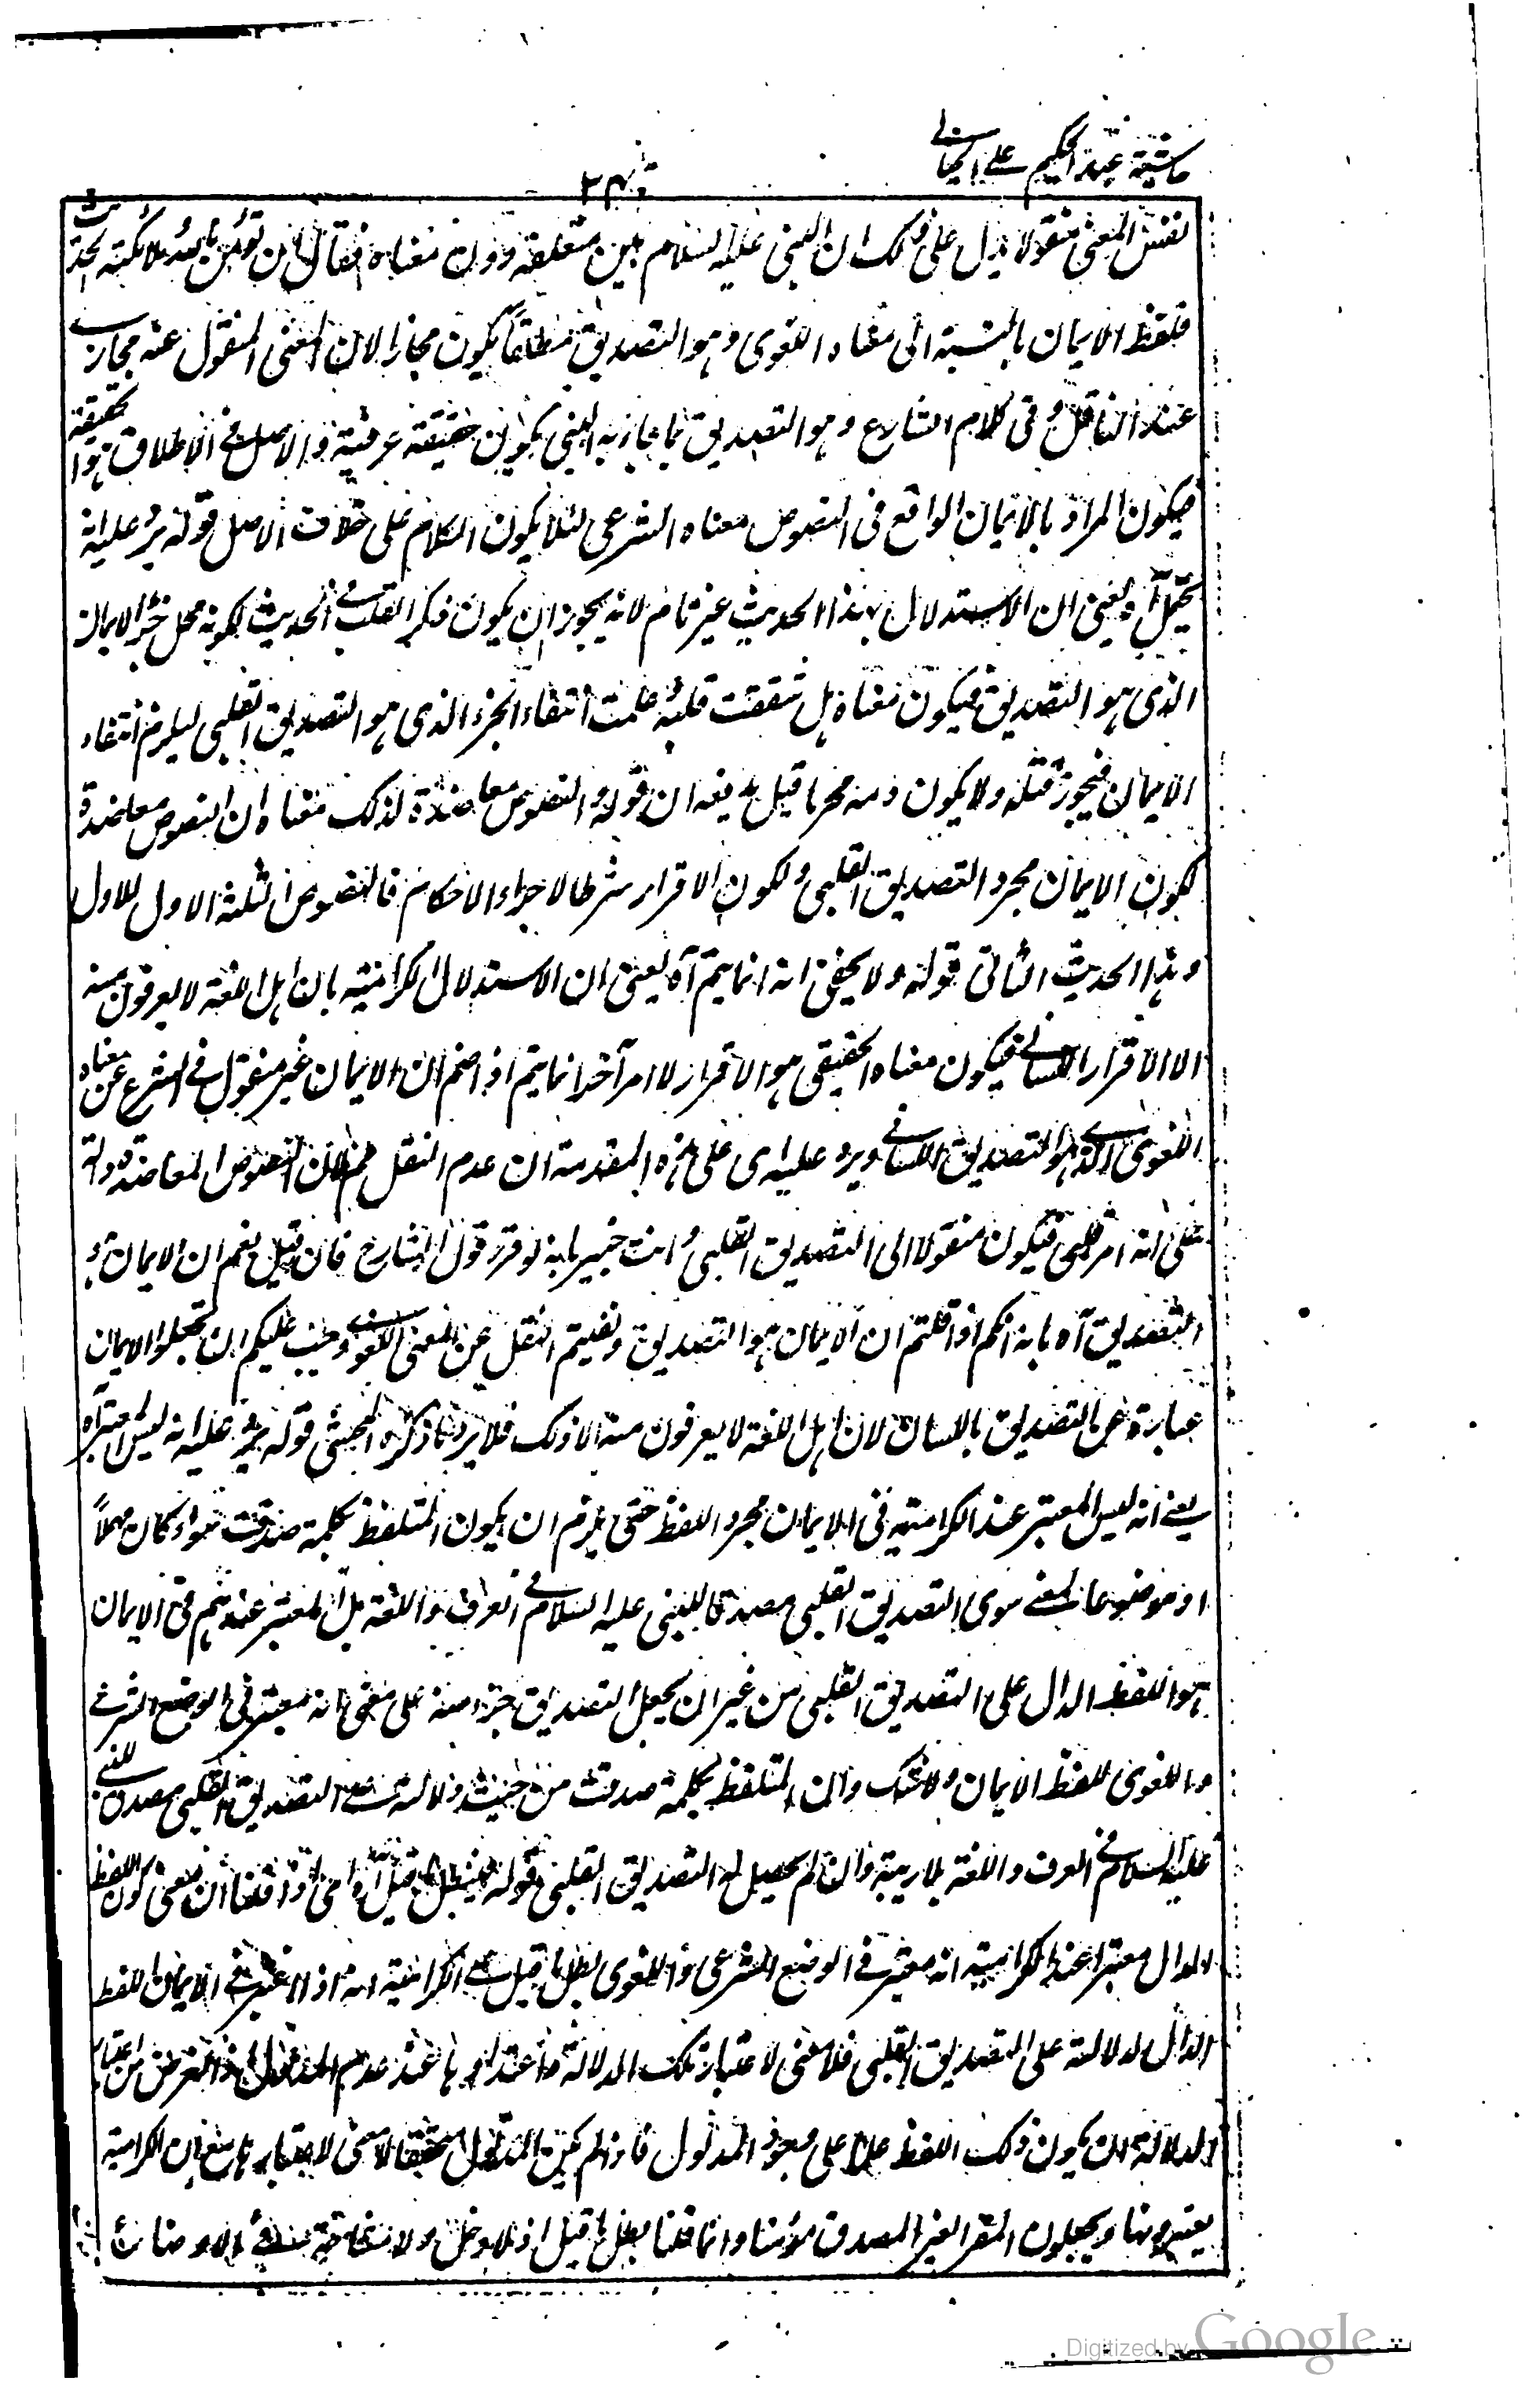 حاشية عبد الحكيم على الخيالي
نفس المعنى منقولا يدل على ذلك ان النبي عليه السلام بين متعلقه دون معناه فقال ان تؤمن بالله وملائكته الحديث
فلفظ الايمان بالنسبة الى معناه اللغوى وهو التصديق مطلقاً يكون مجازا لان المعنى المنقول عنه مجازى
عند الناقل وفى كلام الشارع وهو التصديق بما جاء به النبى يكون حقيقة عرفية والاصل فى الاطلاق هو الحقيقة
فيكون المراد بالايمان الواقع فى النصوص معناه الشرعى لئلا يكون الكلام على خلاف الاصل قوله يرد عليه انه
يحتمل آه يعنى ان الاستدلال بهذا الحديث غير تام لانه يجوز ان يكون ذكر القلب فى الحديث لكونه محل جزء الايمان
الذى هو التصديق فيكون معناه هل شققت قلبه علمت انتفاء الجزء الذى هو التصديق القلبى ليلزم انتفاء
الايمان فيجوز قتله ولا يكون دمه محرما قيل يدفعه ان قوله والنصوص معاضدة لذلك معناه ان النصوص معاضدة
لكون الايمان مجرد التصديق القلبى ولكون الاقرار شرطا لاجراء الاحكام فالنصوص الثلثة الاول للاول
وهذا الحديث للثانى قوله ولا يخفى انه انما يتم آه يعنى ان الاستدلال الكرامية بان اهل اللغة لا يعرفون منه
الا الاقرار اللسانى فيكون معناه الحقيقى هو الاقرار لا امر آخر انما يتم اذا ضم ان الايمان غير منقول فى الشرع عن معناه
اللغوى الذى هو التصديق اللسانى ويرد عليه اى على هذه المقدمة ان عدم النقل مم لان النصوص المعاضدة دالة
على انه امر قلبى فيكون منقولا الى التصديق القلبى وانت خبير بانه لو قرر قول الشارح فان قيل نعم ان الايمان هو
التصديق آه بانه انكم اذا قلتم ان الايمان هو التصديق ونفيتم النقل عن المعنى اللغوى وجب عليكم ان تجعلوا الايمان
عبارة عن التصديق باللسان لان اهل اللغة لا يعرفون منه الا ذلك فلا يرد ما ذكره المحشى قوله يرد عليه انه ليس المعتبر آه
يعنى انه ليس المعتبر عند الكرامية فى الايمان مجرد اللفظ حتى يلزم ان يكون المتلفظ بكلمة صدقت سواء كان مهملاً
او موضوعا لمعنى سوى التصديق القلبى مصدقا للنبى عليه السلام فى العرف واللغة بل المعتبر عندهم فى الايمان
هو اللفظ الدال على التصديق القلبى من غير ان يجعل التصديق جزءا منه على معنى انه معتبر فى الوضع الشرعى
واللغوى للفظ الايمان ولا شك وان المتلفظ بكلمة صدقت من حيث دلالته على التصديق القلبى مصدق للنبى
عليه السلام فى العرف واللغة بلا ريبة وان لم يحصل له التصديق القلبى قوله فيبطل ما قيل آه اى اذا قلنا ان معنى كون اللفظ
الدال معتبرا عند الكرامية انه معتبر فى الوضع الشرعى واللغوى بطل ما قيل على الكرامية انه اذا اعتبر فى الايمان اللفظ
الدال لدلالته على التصديق القلبى فلا معنى لاعتبار تلك الدلالة واعتدادها عند عدم المدلول اذ الغرض من اعتبار
الدلالة ان يكون ذلك اللفظ علما على وجود المدلول فاذا لم يكن المدلول متحققا لا معنى لاعتبارها مع ان الكرامية
يعتبرونها ويجعلون المقر الغير المصدق مؤمنا وانما قلنا بطل ما قيل اذ لا دخل ولا مناقشة فى الاوضاع